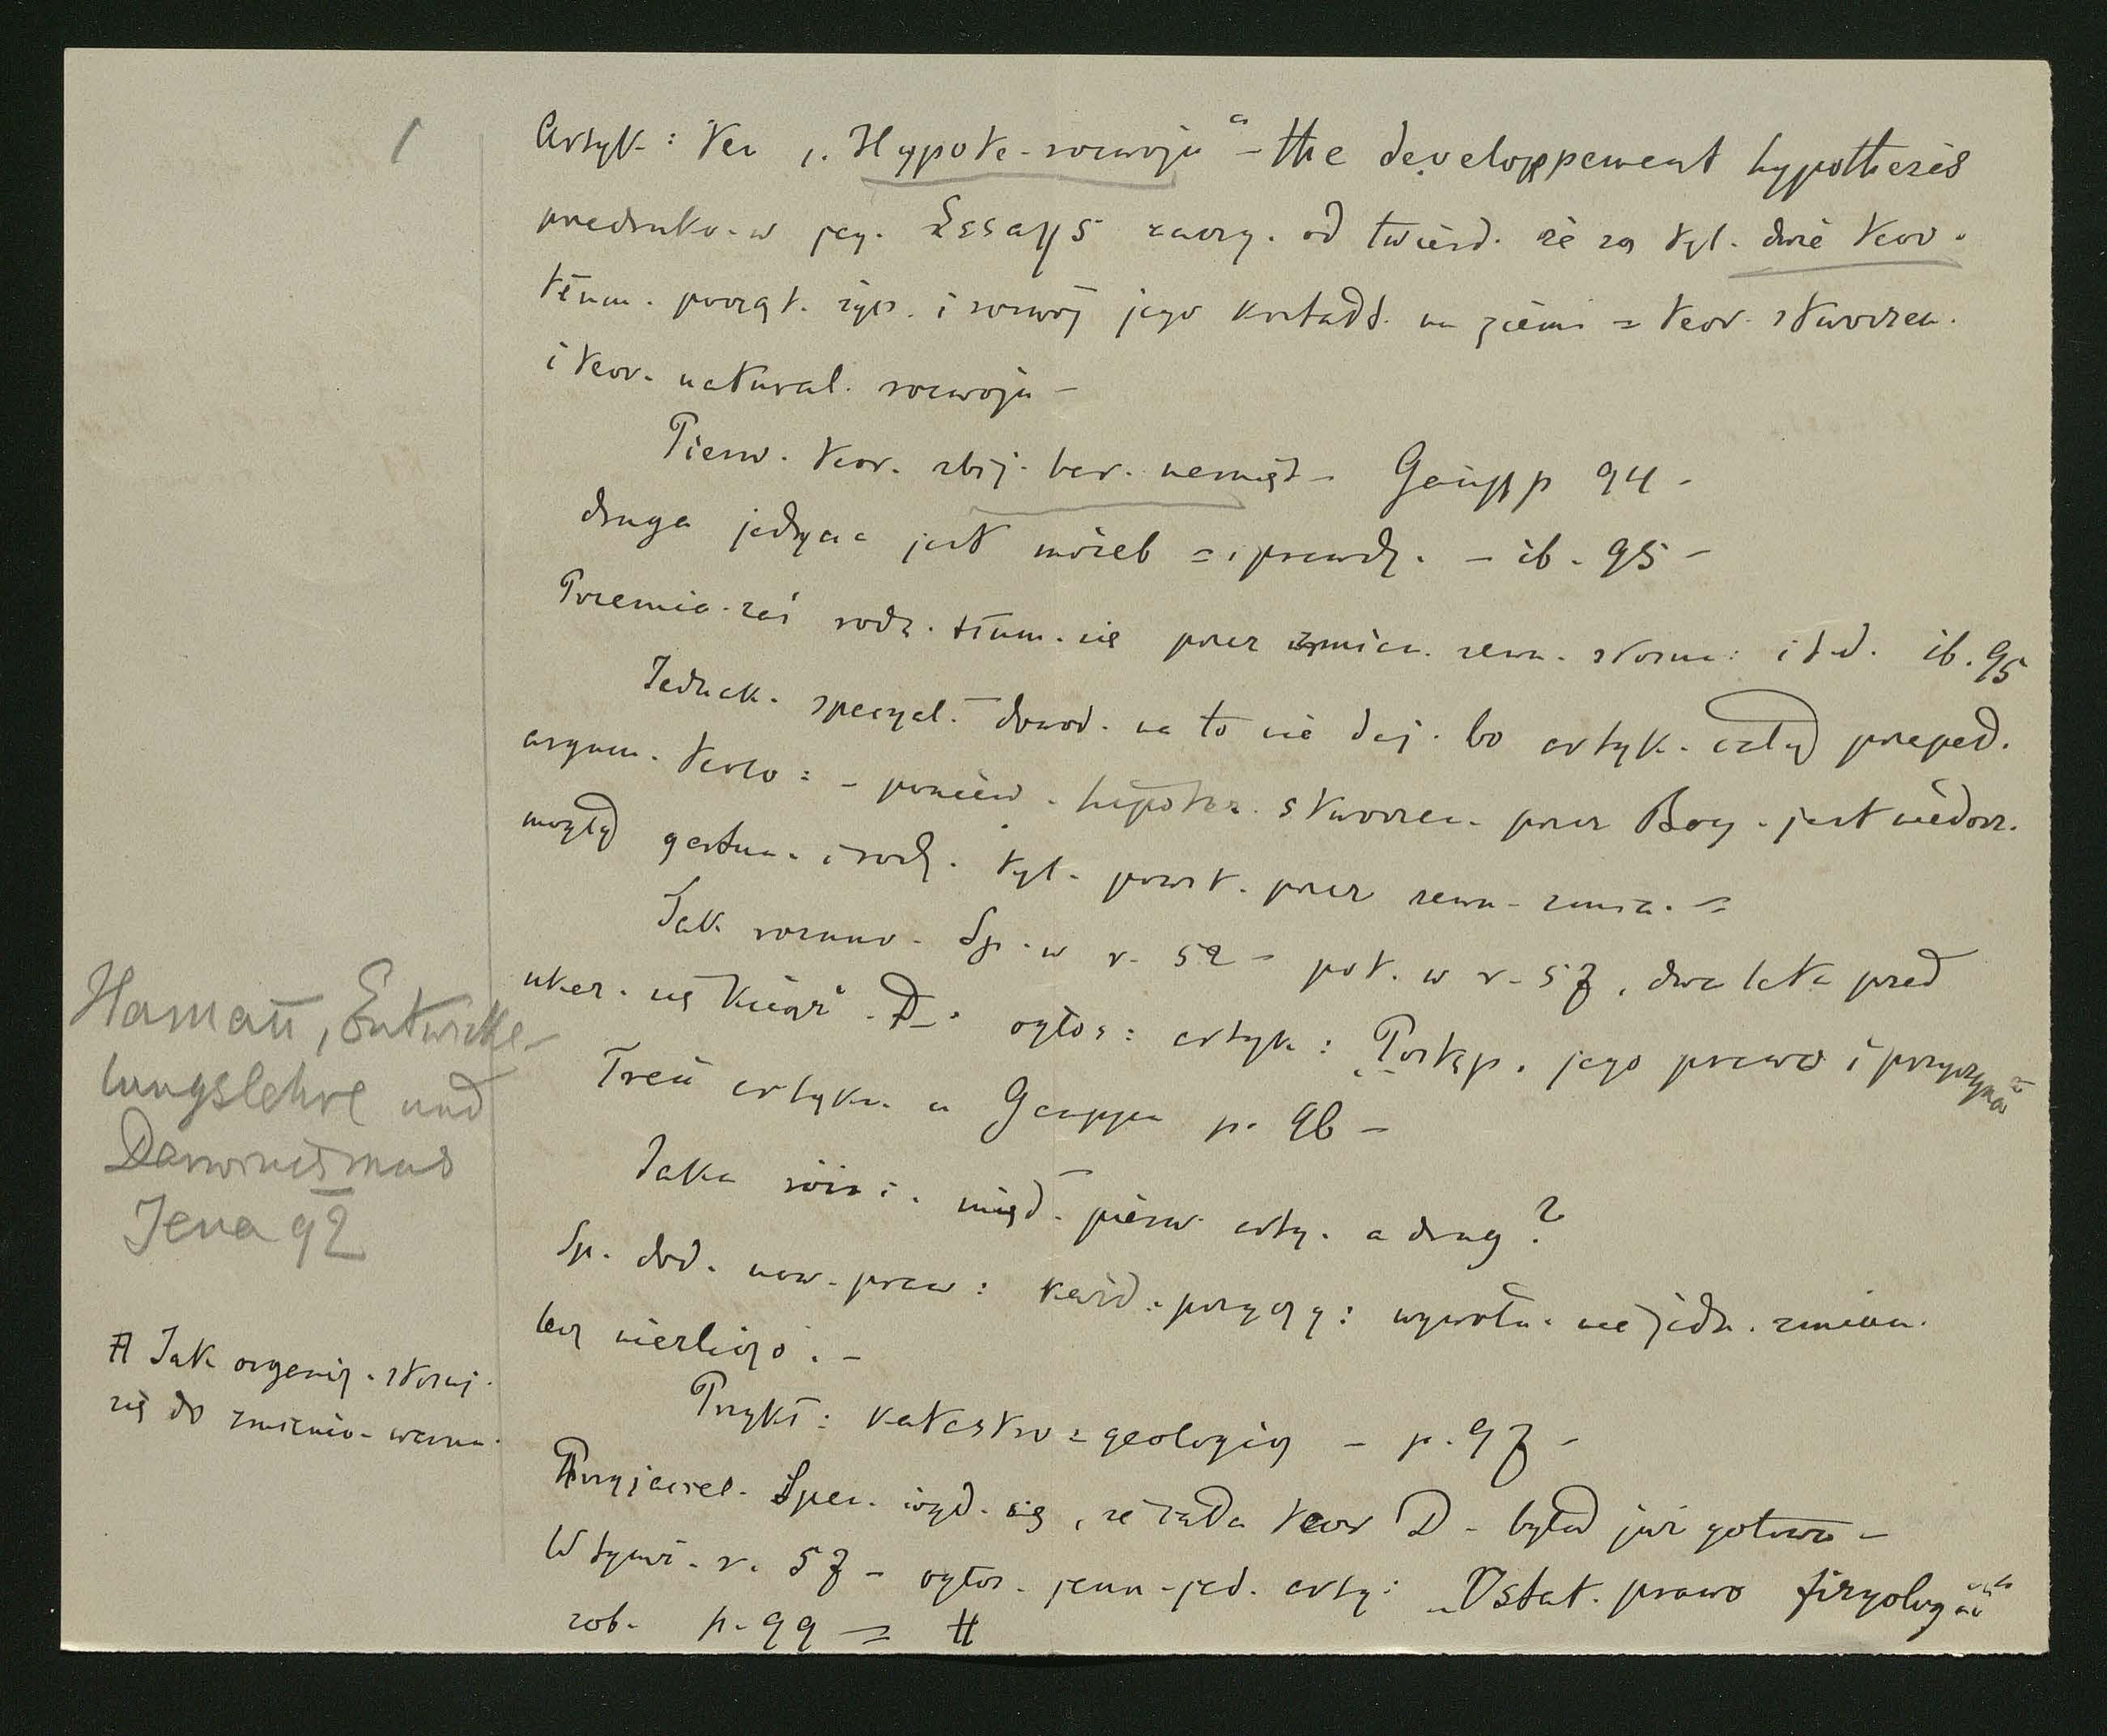 1
Artyk: ten „Hypote. rozwoju“ – the developpement hypothesis
przedruko. w jeg. Essays zaczy. od twierd. że są tyl. dwie teor.
tłum. począt. życ. i rozwój jego kształt. na ziemi = teor. stworzen.
i teor. natural. rozwoju –
Pierw. teor. zbij. bar. namięt – Gaupp 94 –
druga jedyna jest możeb = i prawdz. – ib. 95 –
Przemia. zaś rodz. tłum. się przez zmian. zewn. stosun: i t.d. ib. 95
Jednak. specyal. dowod. na to nie daj. bo artyk. cały
argum. : – poniew. hipotez. stworzen. przez Bog. jest niedorz.
mogły gatun. i rodz. tyl. powst. przez zewn. zmia. =
Tak rozumo. Sp. w r. 52 – pot. w r. 57, dwa lata przed
ukaz. się książ. D. ogłos: artyk: „Postęp, jego prawo i przyczyna“
Treść artyku. u Gauppa p. 96 –
Jaka różni. międ. pierw. arty. a drug?
Sp. dod. now. praw: każd. przyczy: wywołu. nie jedn. zmian.
lecz niezliczo. –
Przykł: katastro = geologicz – p. 97 –
Przyjaciel. Spen. wyd. się, że cała teor D. była już gotowa –
W tymż. r. 57 – ogłos. jeszcz. jed. arty: „Ostat. prawo fizyologii“
zob. p. 99 = #
Hamann, Entwicke-
lungslehre und
Darwinismus
Jena 92
# Jak organiz. stosuj.
się do zmienio. warun.